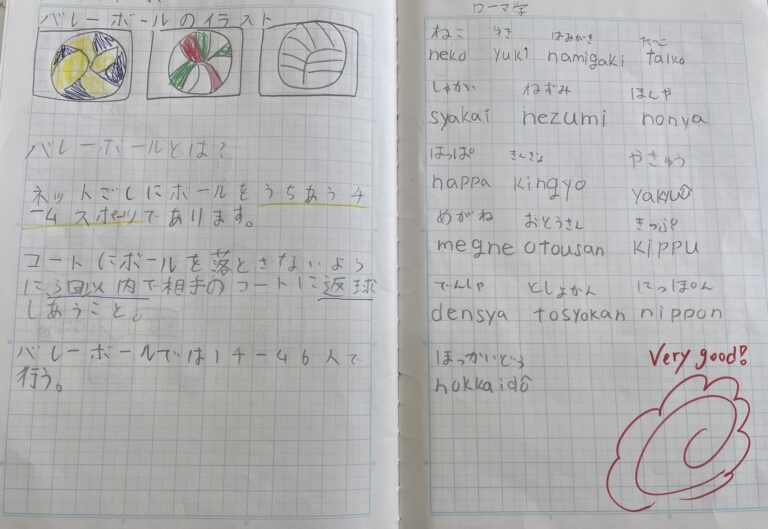 バレーボールのイラスト
バレーボールとは?
ネットごしにボールをうちあうチ
ームスポーツであります。
コートにボールを落とさないよう
に3回以内で相手のコートに返球
しあうこと。
バレーボールでは1チーム6人で
行う。
ローマ字
ねこ ゆき はみがき たこ
neko yuki hamigaki taiko
しゃかい ねずみ ほんや
syakai nezumi honya
はっぱ きんぎょ やきゅう
happa kingyo yakyuô
めがね おとうさん きっぷ
megne otousan kippu
でんしゃ としょかん にっぽん
densya tosyokan nippon
ほっかいどう
hokkaidô
Very good!